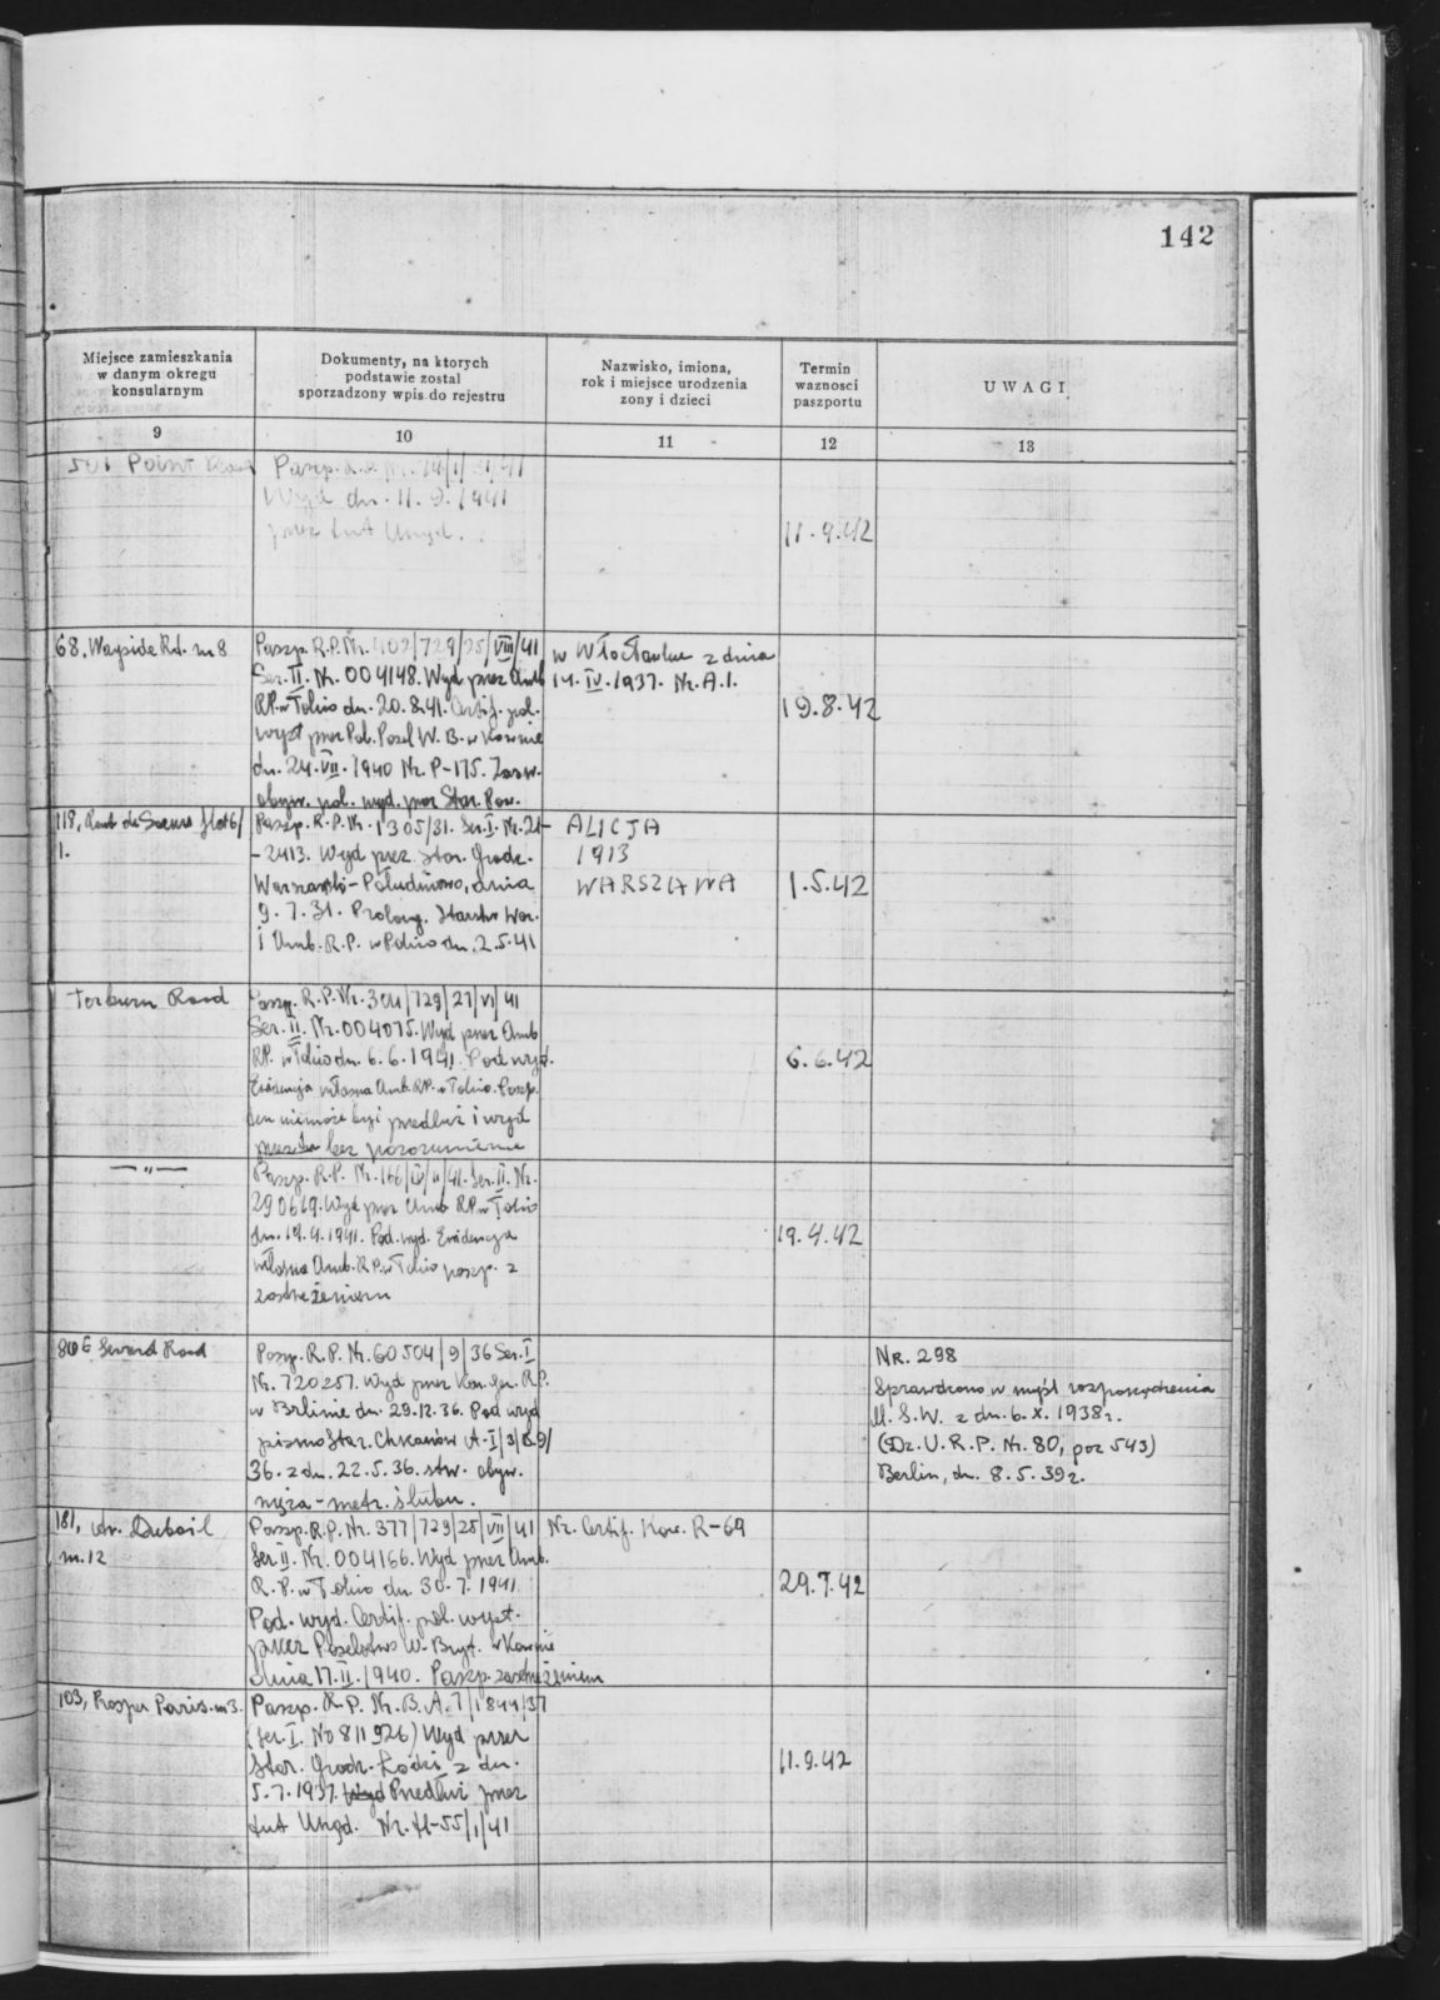 142
Miejsce zamieszkania
w danym okregu
konsularnym
Dokumenty, na ktorych
podstawie zostal
sporzadzony wpis do rejestru
Nazwisko, imiona,
rok i miejsce urodzenia
zony i dzieci
Termin
waznosci
paszportu
UWAGI
9
10
11
12
13
501 Point Road
Paszp. R.P. Nr. 14/1/31/41
Wyd dn. 11. 9. 1941
przez tut Urząd.
11.9.42
68, Wayside Rd. m 8
Paszp. R.P. Nr. 402/729/25/VIII/41
Ser. II. Nr. 004148. Wyd przez Amb
RP. w Tokio dn. 20.8.41. Certif. pol.
wyst przez Pol. Posel W. B. w Kownie
dn. 24.VII.1940 Nr. P-175. Zasw.
obyw. pol. wyd. przez Star. Pow.
w Włocławku z dnia
14. IV. 1937. Nr. A.1.
19.8.42
118, Rout de Soeurs flat 6/
1.
Paszp. R.P. Nr. 1305/31. Ser. I. Nr. 21-
-2413. Wyd przez Star. Grodz.
Warszawsko-Południowo, dnia
9.7.31. Prolong. Starstw War.
i Amb. R.P. w Tokio dn. 2.5.41
ALICJA
1913
WARSZAWA
1.5.42
Torburn Road
Paszp. R.P. Nr. 304/729/27/VI/41
Ser. II. Nr. 004075. Wyd przez Amb
RP. w Tokio dn. 6.6.1941. Pod wyd.
Ewidencja własna Amb. RP. w Tokio. Paszp.
ten niemoże być przedłuż i wyst
bez porozumienia
6.6.42
— „ —
Paszp. R.P. Nr. 166/IV/ /41. Ser. II. Nr.
290619. Wyd przez Amb RP w Tokio
dn. 19.4.1941. Pod. wyd. Ewidencja
własna Amb. RP. w Tokio paszp. z
zastrzeżeniem
19.4.42
806 Seward Road
Paszp. R.P. Nr. 60504/9/36 Ser. I
Nr. 720257. Wyd przez Kon. Gen. R.P.
w Brlinie dn. 29.12.36. Pod wyd
pismo Star. Chrzanów A-I/3/ /
36. z dn. 22.5.36. stw. obyw.
męża - metr. ślubu.
NR. 298
Sprawdzono w myśl rozporządzenia
M. S. W. z dn. 6. X. 1938 r.
(Dz. U. R. P. Nr. 80, poz 543)
Berlin, dn. 8. 5. 39 r.
181, Av. Dubail
m. 12
Paszp. R.P. Nr. 377/729/25/VII/41
Ser II. Nr. 004166. Wyd przez Amb.
R. P. w Tokio dn. 30. 7. 1941
Pod. wyd. Certif. pol. wyst.
przez Poselstwo W. Bryt. w Kownie
dnia 17. II. 1940. Paszp. zastrzeżeniem
Nr. Certif. Kow. R-69
29.7.42
103, Prosper Paris. m 3.
Paszp. R. P. Nr. B. A. 7/1844/37
(Ser. I. No 811926) Wyd przez
Star. Grodz. Łodzi z dn.
5.7.1937. Wyd Przedłuż przez
tut Urząd. Nr. H-55/1/41
11.9.42